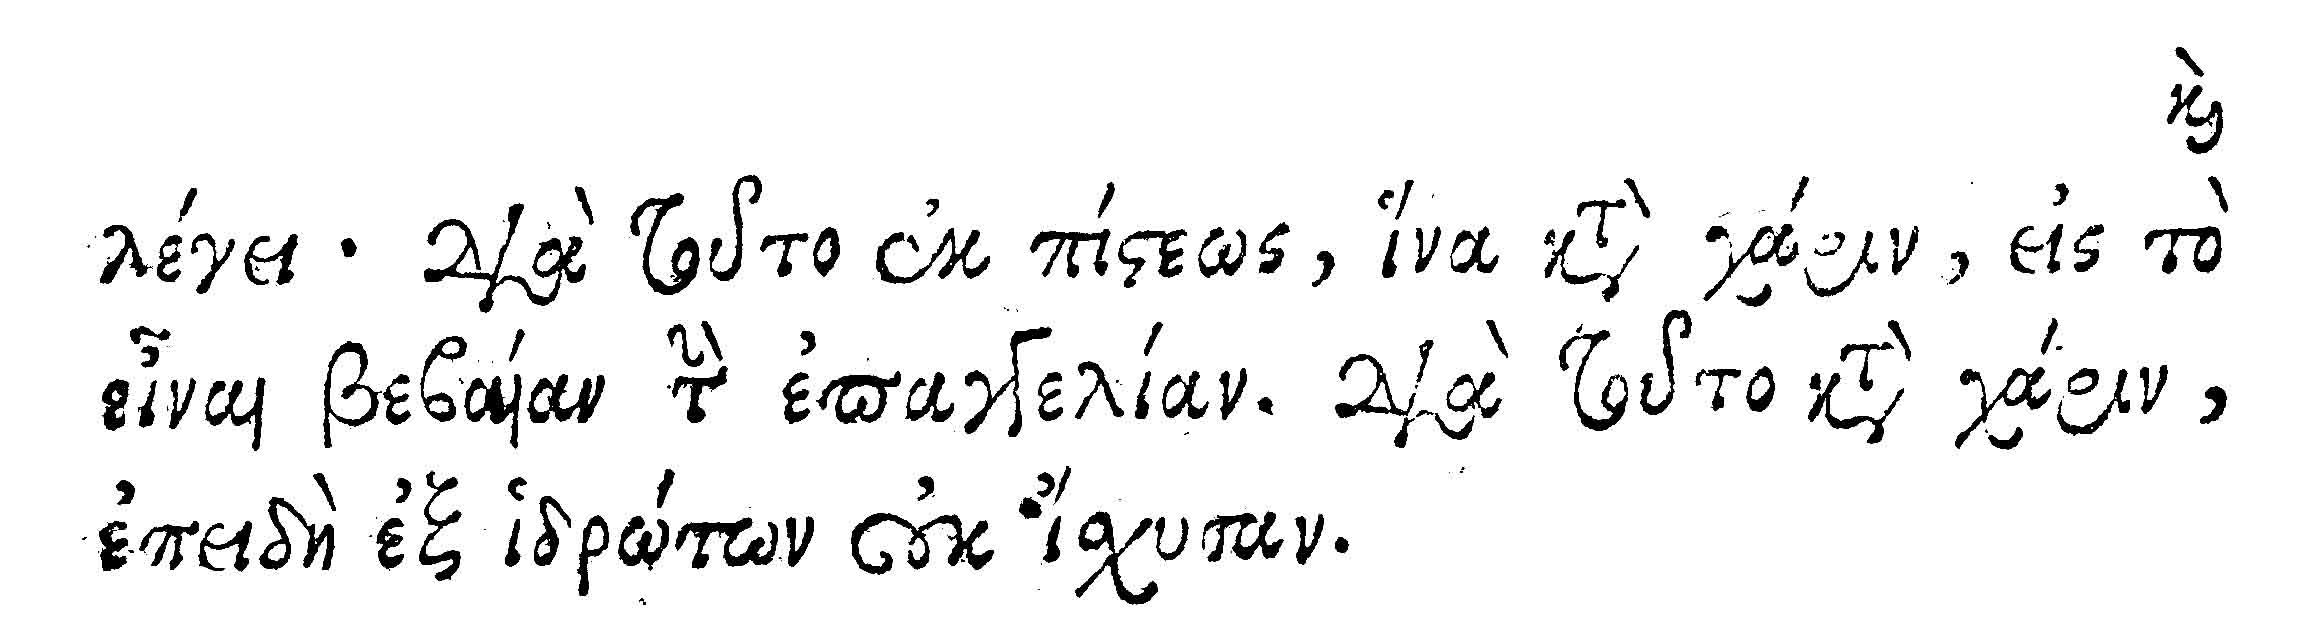 καὶ
λέγει· Διὰ τοῦτο ἐκ πίστεως, ἵνα κατὰ χάριν, εἰς τὸ
εἶναι βεβαίαν τὴν ἐπαγγελίαν. Διὰ τοῦτο κατὰ χάριν,
ἐπειδὴ ἐξ ἱδρώτων οὐκ ἴσχυσαν.